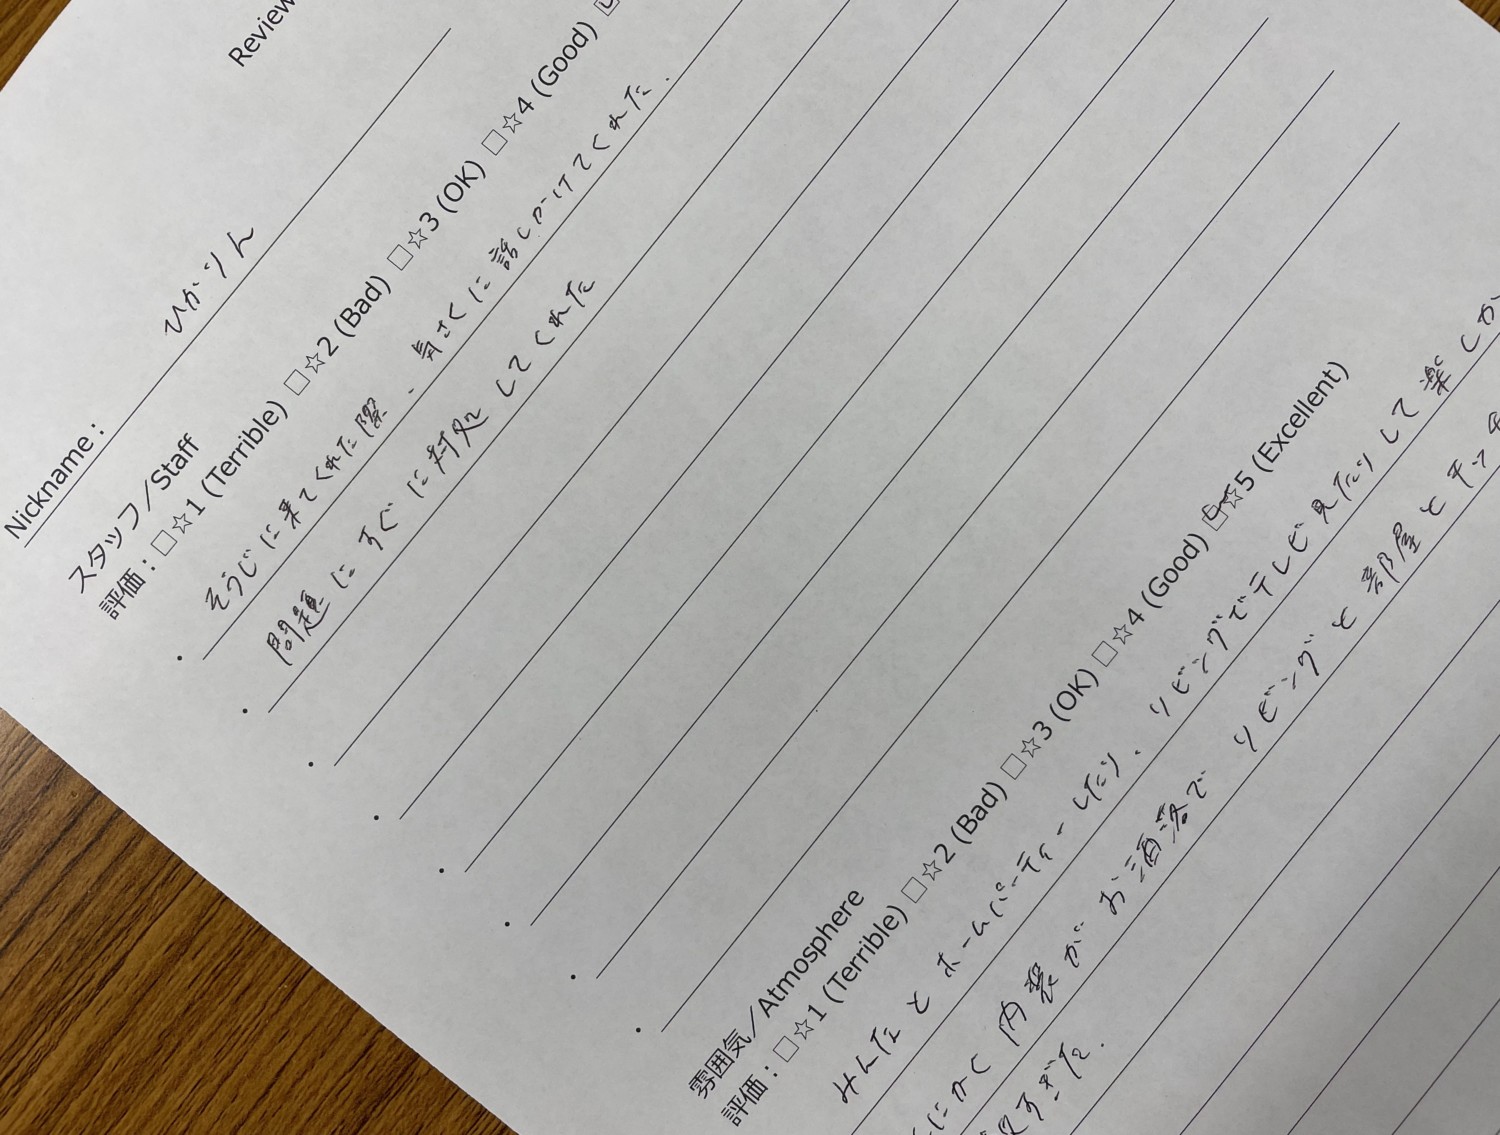 Review
Nickname: ひかりん
スタッフ／Staff
評価：□☆1 (Terrible) □☆2 (Bad) □☆3 (OK) □☆4 (Good)
・そうじに来てくれた際、気さくに話しかけてくれた.
・問題にすぐに対処してくれた
・
・
・
・
・
・
雰囲気／Atmosphere
評価：□☆1 (Terrible) □☆2 (Bad) □☆3 (OK) □☆4 (Good) □☆5 (Excellent)
みんなとホームパーティーしたり、リビングでテレビ見たりして楽しか
にかく内装がお洒落でリビングと部屋と
すぎた.